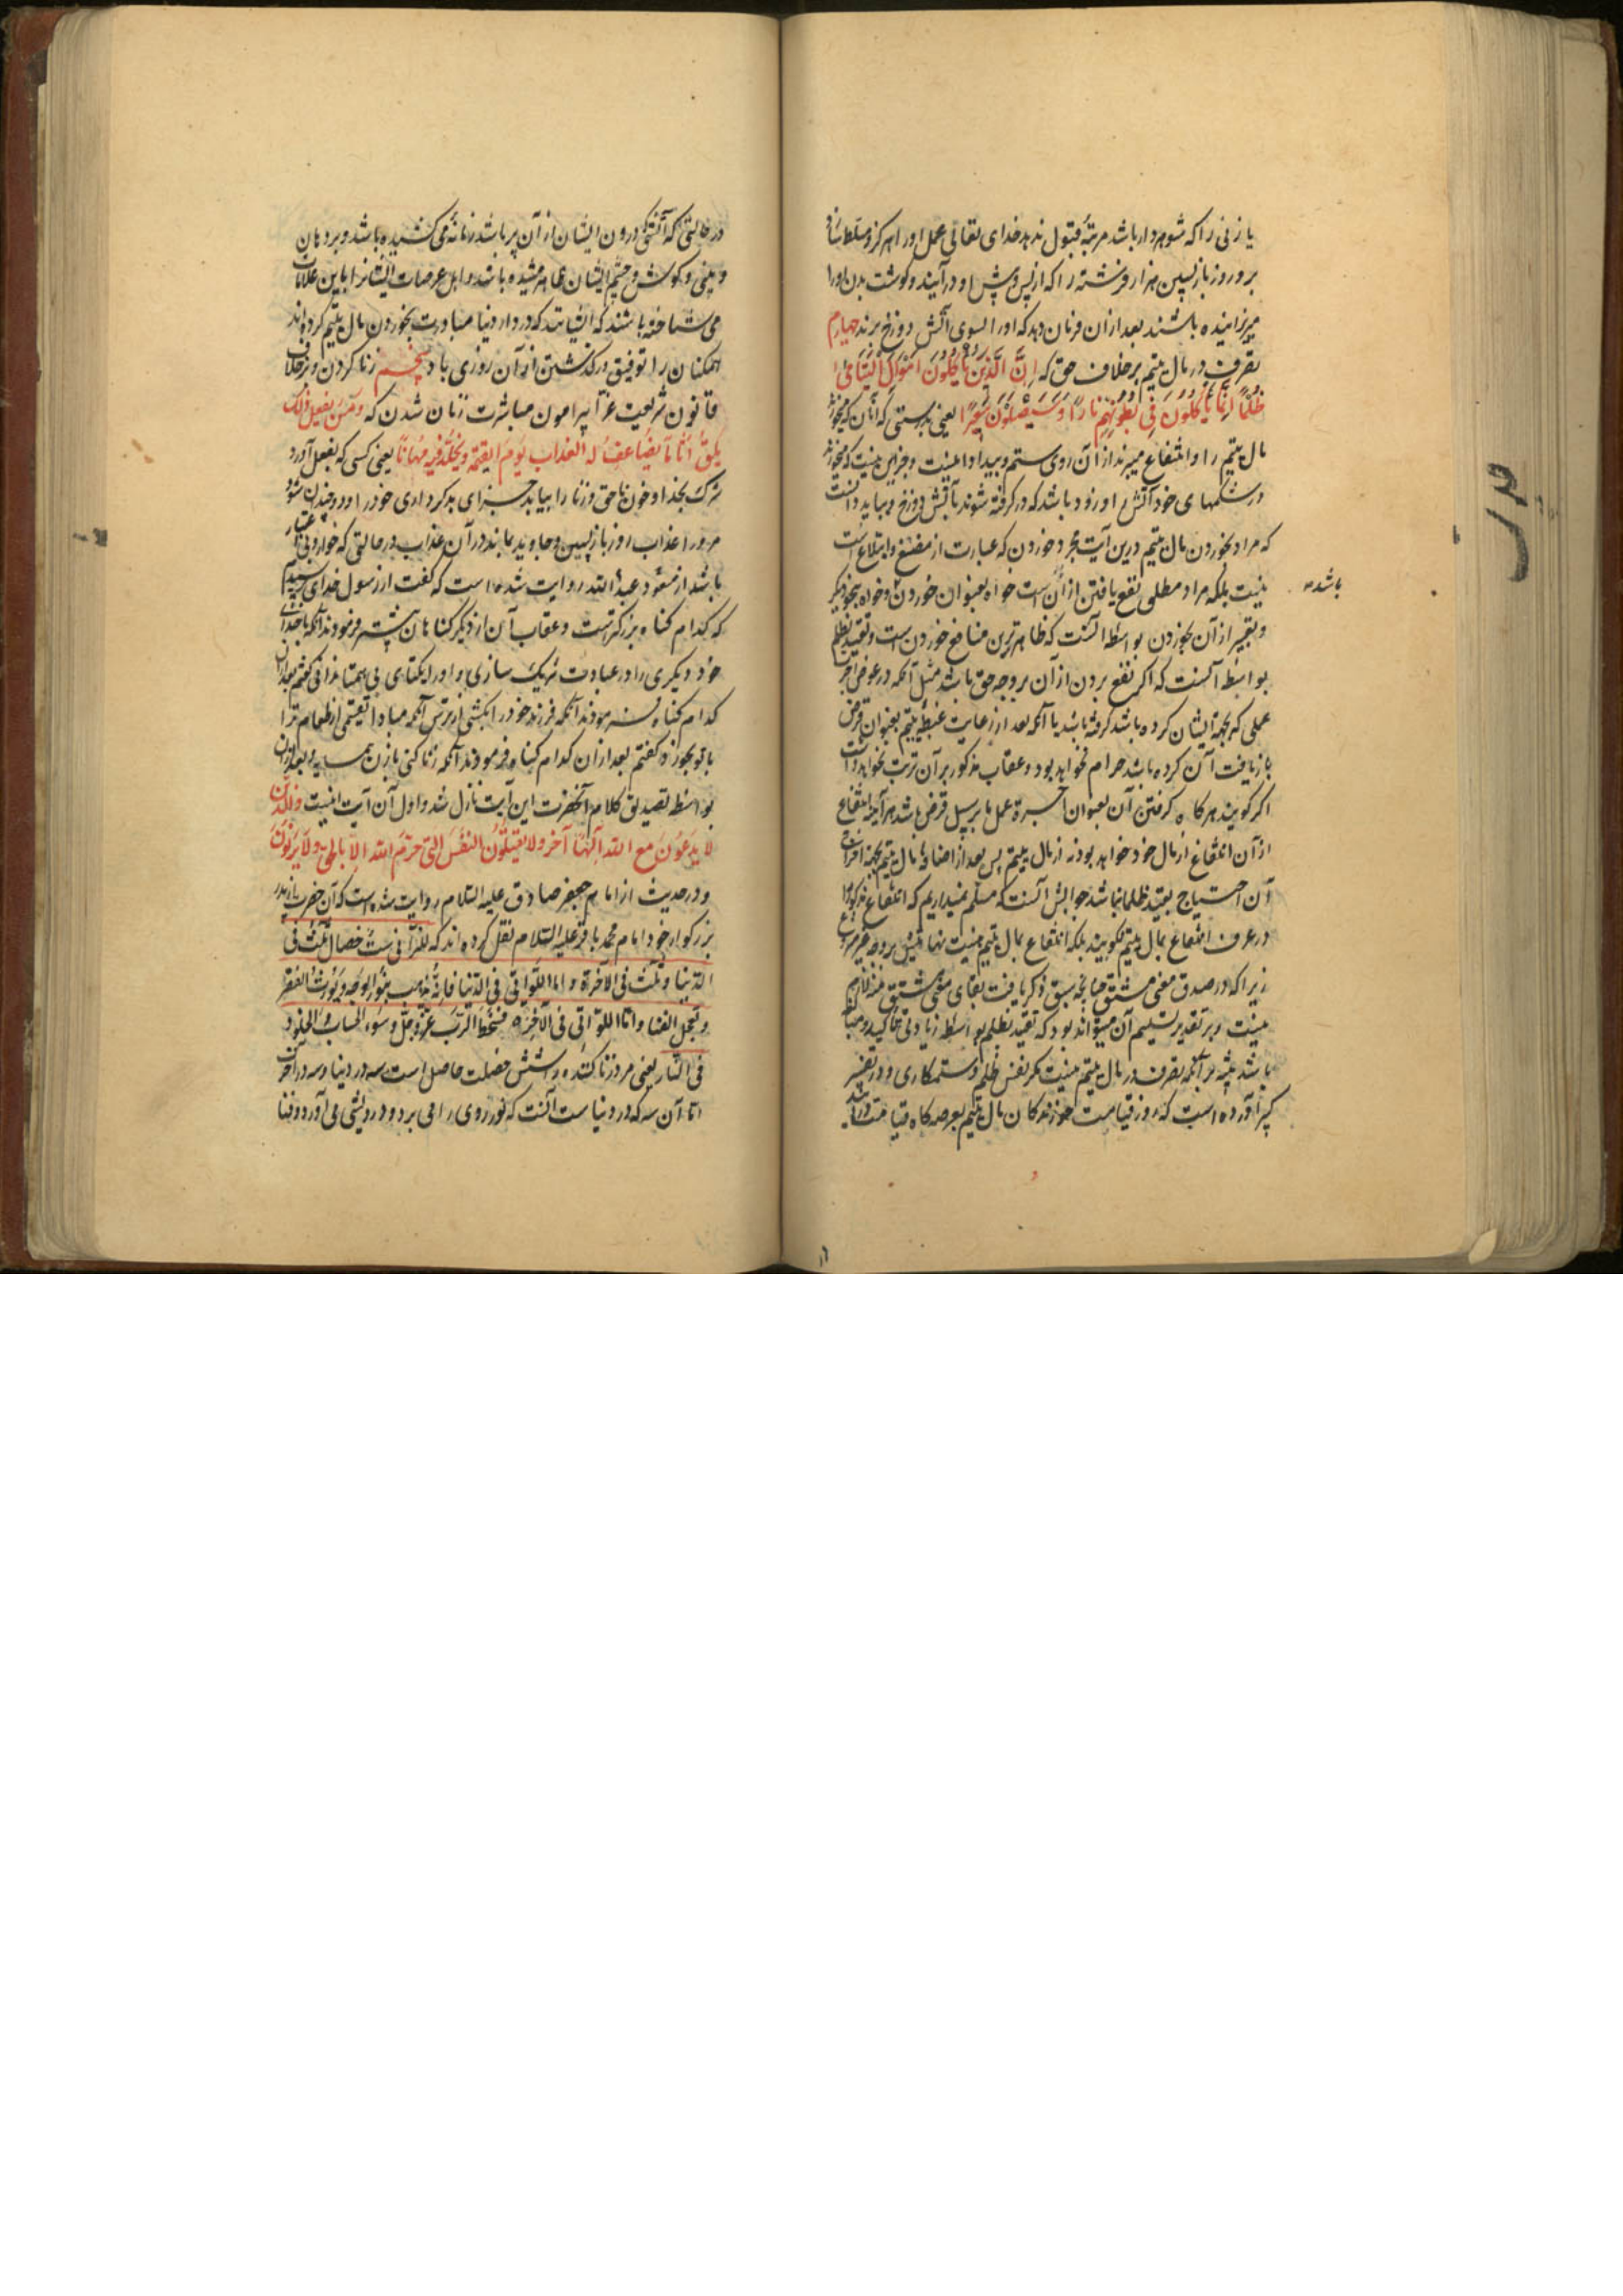 یا زنی را که شوهردار باشد مرتبهٔ قبول ندهد خدای تعالی عمل او را هرگز و مسلط سازد
برو روز بازپسین هزار فرشته را که از پس و پیش او درآیند و گوشت بدن او را
میزاینده باشند بعد از ان فرمان دهد که او را بسوی آتش دوزخ برند چهارم
تصرف در مال یتیم بر خلاف حق که إِنَّ الَّذِینَ یَأْکُلُونَ أَمْوَالَ الْیَتَامَی
ظُلْمًا إِنَّمَا یَأْکُلُونَ فِی بُطُونِهِمْ نَارًا وَسَیَصْلَوْنَ سَعِیرًا یعنی بدرستی که آنان که میخورند
مال یتیم را و انتفاع میبرند از آن روی ستم و بیداد اینست و جز این نیست که میخورند
در شکمهای خود آتش را و زود باشد که در گرفته شوند بآتش دوزخ و بباید دانست
که مراد بخوردن مال یتیم درین آیت مجرد خوردن که عبارت از مضغ و ابتلاع است
نیست بلکه مراد مطلق نفع یافتن از آنست خواه بعنوان خوردن و خواه بنحو دیگر
باشد
و تعبیر از آن بخوردن بواسطهٔ آنست که ظاهرترین منافع خوردن است و تقیید بظلم
بواسطهٔ آنست که اگر نفع بردن از آن بر وجه حق باشد مثل آنکه در عوض اجر
عملی که بجهة ایشان کرده باشد گرفته باشد یا آنکه بعد از رعایت غبطهٔ یتیم بعنوان قرض
بازیافت آن کرده باشد حرام نخواهد بود و عقاب مذکور بر آن ترتب نخواهد داشت
اگر گویند هرگاه گرفتن آن بعنوان اجرة عمل یا بر سبیل قرض باشد هرآینه انتفاع
از آن انتفاع از مال خود خواهد بود نه از مال یتیم پس بعد از اضافهٔ مال یتیم بجهة اخراج
آن احتیاج بقید ظلما نباشد جوابش آنست که مسلم نمیداریم که انتفاع مذکور را
در عرف انتفاع بمال یتیم نگویند بلکه انتفاع بمال یتیم نیست
زیرا که در صدق معنی مشتق چنانچه سبق ذکر یافت بقای معنی مشتق منه لازم
نیست و بر تقدیر تسلیم آن میتواند بود که تقیید بظلم بواسطهٔ زیادتی تاکید و مبالغه
باشد بر آنکه تصرف در مال یتیم نیست مگر نفس ظلم و ستمکاری و در تفسیر
کبیر آورده است که روز قیامت خورندگان مال یتیم بعرصه‌گاه قیامت درآیند
در حالتی که آتش درون ایشان از آن پر باشد زبانه می‌کشیده باشد و بر دهان
و بینی و گوش و چشم ایشان ظاهر میشده باشد و اهل عرصات ایشانرا باین علامات
می‌شناخته باشند که ایشانند که در دار دنیا مبادرت بخوردن مال یتیم کرده‌اند
همگنان را توفیق در گذشتن از آن روزی باد پنجم زنا کردن و برخلاف
قانون شریعت غرا پیرامون مباشرت زنان شدن که وَمَن یَفْعَلْ ذَلِکَ
یَلْقَ أَثَامًا یُضَاعَفْ لَهُ الْعَذَابُ یَوْمَ الْقِیمَةِ وَیَخْلُدْ فِیهِ مُهَانًا یعنی کسی که بفعل آورد
شرک بخدا و خون ناحق و زنا را بیابد جزای بدکرداری خود را و دوچندان شود
مر او را عذاب روز بازپسین و جاوید بماند در آن عذاب در حالتی که خوار و بی اعتبار
باشد از مسعود عبد الله روایت شده است که گفت از رسول خدای پرسیدم
که کدام گناه بزرگترست و عقاب آن از دیگر گناهان بیشتر فرمودند آنکه با خدای
خود دیگری را در عبادت شریک سازی و او را یکتای بی همتا ندانی گفتم بعد از ان
کدام گناه فرمودند آنکه فرزند خود را بکشی از ترس آنکه مبادا لقمهٔ از طعام ترا
با تو بخورد گفتم بعد از ان کدام گناه فرمودند آنکه زنا کنی با زن همسایه و بعد از ان
بواسطهٔ تصدیق کلام آنحضرت این آیت نازل شد و اول آن آیت اینست والذین
لا یدعون مع الله إلها آخر ولا یقتلون النفس التی حرم الله إلا بالحق ولا یزنون
و در حدیث از امام جعفر صادق علیه السلام روایت شده است که آن حضرت از پدر
بزرگوار خود امام محمد باقر علیه السلام نقل کرده‌اند که للزانی ست خصال ثلث فی
الدنیا و ثلث فی الآخرة و اما اللواتی فی الدنیا فانه یذهب بنور الوجه و یورث الفقر
و یعجل الفنا و اما اللواتی فی الآخرة فسخط الرب عز و جل و سوء الحساب و الخلود
فی النار یعنی مر زنا کننده را شش خصلت حاصل است سه در دنیا و سه در آخرت
اما آن سه که در دنیاست آنست که نور روی را می برد و درویشی می آورد و فنا